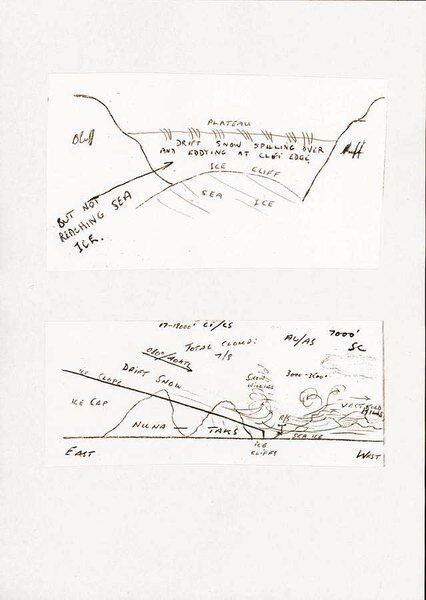 PLATEAU
DRIFT SNOW SPILLING OVER
AND EDDYING AT CLIFF EDGE
Bluff
Bluff
ICE CLIFF
SEA
ICE
BUT NOT
REACHING SEA
ICE.
17-18000' CI/CS
AC/AS
7000'
SC
TOTAL CLOUD:
7/8
ICE SLOPE
DRIFT SNOW
SNOW
WILLIES
ICE CAP
NUNA
TAKS
SEA ICE
ICE
CLIFFS
EAST
WEST